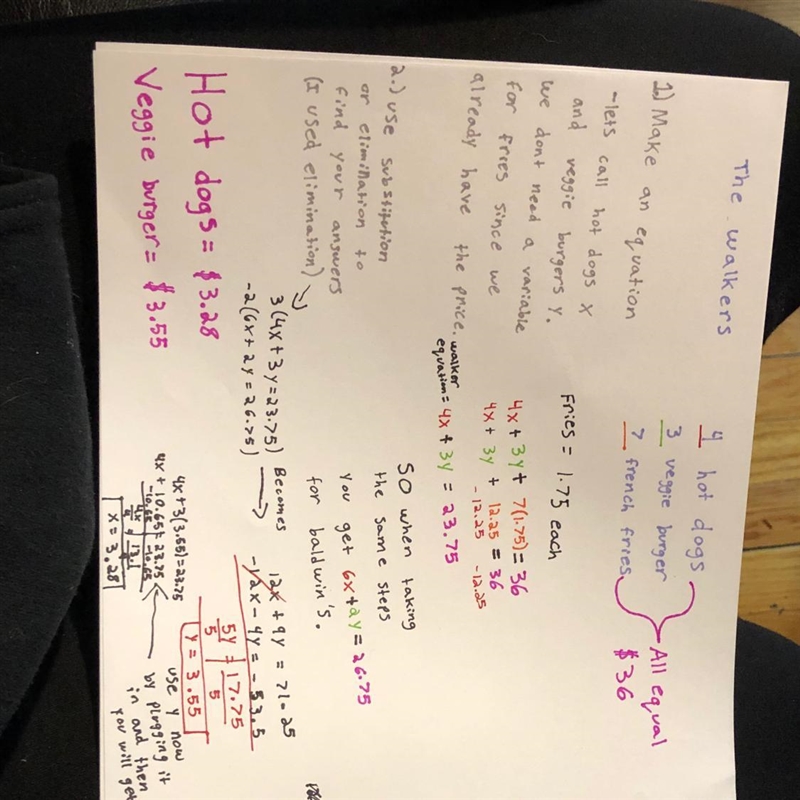 The walkers
4 hot dogs
3 veggie burger
7 french fries
All equal
$36
1) Make an equation
-lets call hot dogs X
and veggie burgers Y.
we dont need a variable
for fries since we
already have the price.
Fries = 1.75 each
4x + 3y + 7(1.75) = 36
4x + 3y + 12.25 = 36
-12.25 -12.25
walker
equation = 4x + 3y = 23.75
2.) use substitution
or elimination to
find your answers
(I used elimination)
SO when taking
the same steps
You get 6x+2y=26.75
for baldwin's.
3(4x+3y=23.75)
-2(6x+2y=26.75)
Becomes
12x + 9y = 71.25
-12x - 4y = -53.5
5y = 17.75
5 5
y = 3.55
use y now
by plugging it
in and then
you will get
4x+3(3.55)=23.75
4x + 10.65 = 23.75
-10.65 -10.65
x = 3.28
Hot dogs = $3.28
Veggie burger = $3.55